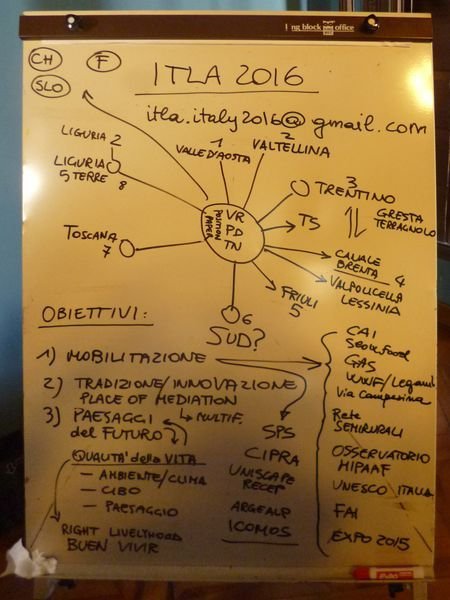 block office
CH
F
SLO
ITLA 2016
itla.italy2016@gmail.com
LIGURIA 2
LIGURIA
5 TERRE 8
1
VALLE D'AOSTA
2
VALTELLINA
3
TRENTINO
GRESTA
TERRAGNOLO
POSITION
PAPER
VR
PD
TN
TS
TOSCANA
7
CANALE
BRENTA 4
VALPOLICELLA
LESSINIA
FRIULI
5
6
SUD?
OBIETTIVI:
1) MOBILITAZIONE
2) TRADIZIONE/INNOVAZIONE
PLACE OF MEDIATION
MULTIF.
3) PAESAGGI
del FUTURO
QUALITA' della VITA
– AMBIENTE/CLIMA
– CIBO
– PAESAGGIO
RIGHT LIVELYHOOD
BUEN VIVIR
SPS
CIPRA
UNISCAPE
RECEP
ARGEALP
ICOMOS
CAI
Slow Food
GAS
WWF/Legami
Via Campesina
Rete
SEMIRURALI
OSSERVATORIO
MIPAAF
UNESCO ITALIA
FAI
EXPO 2015